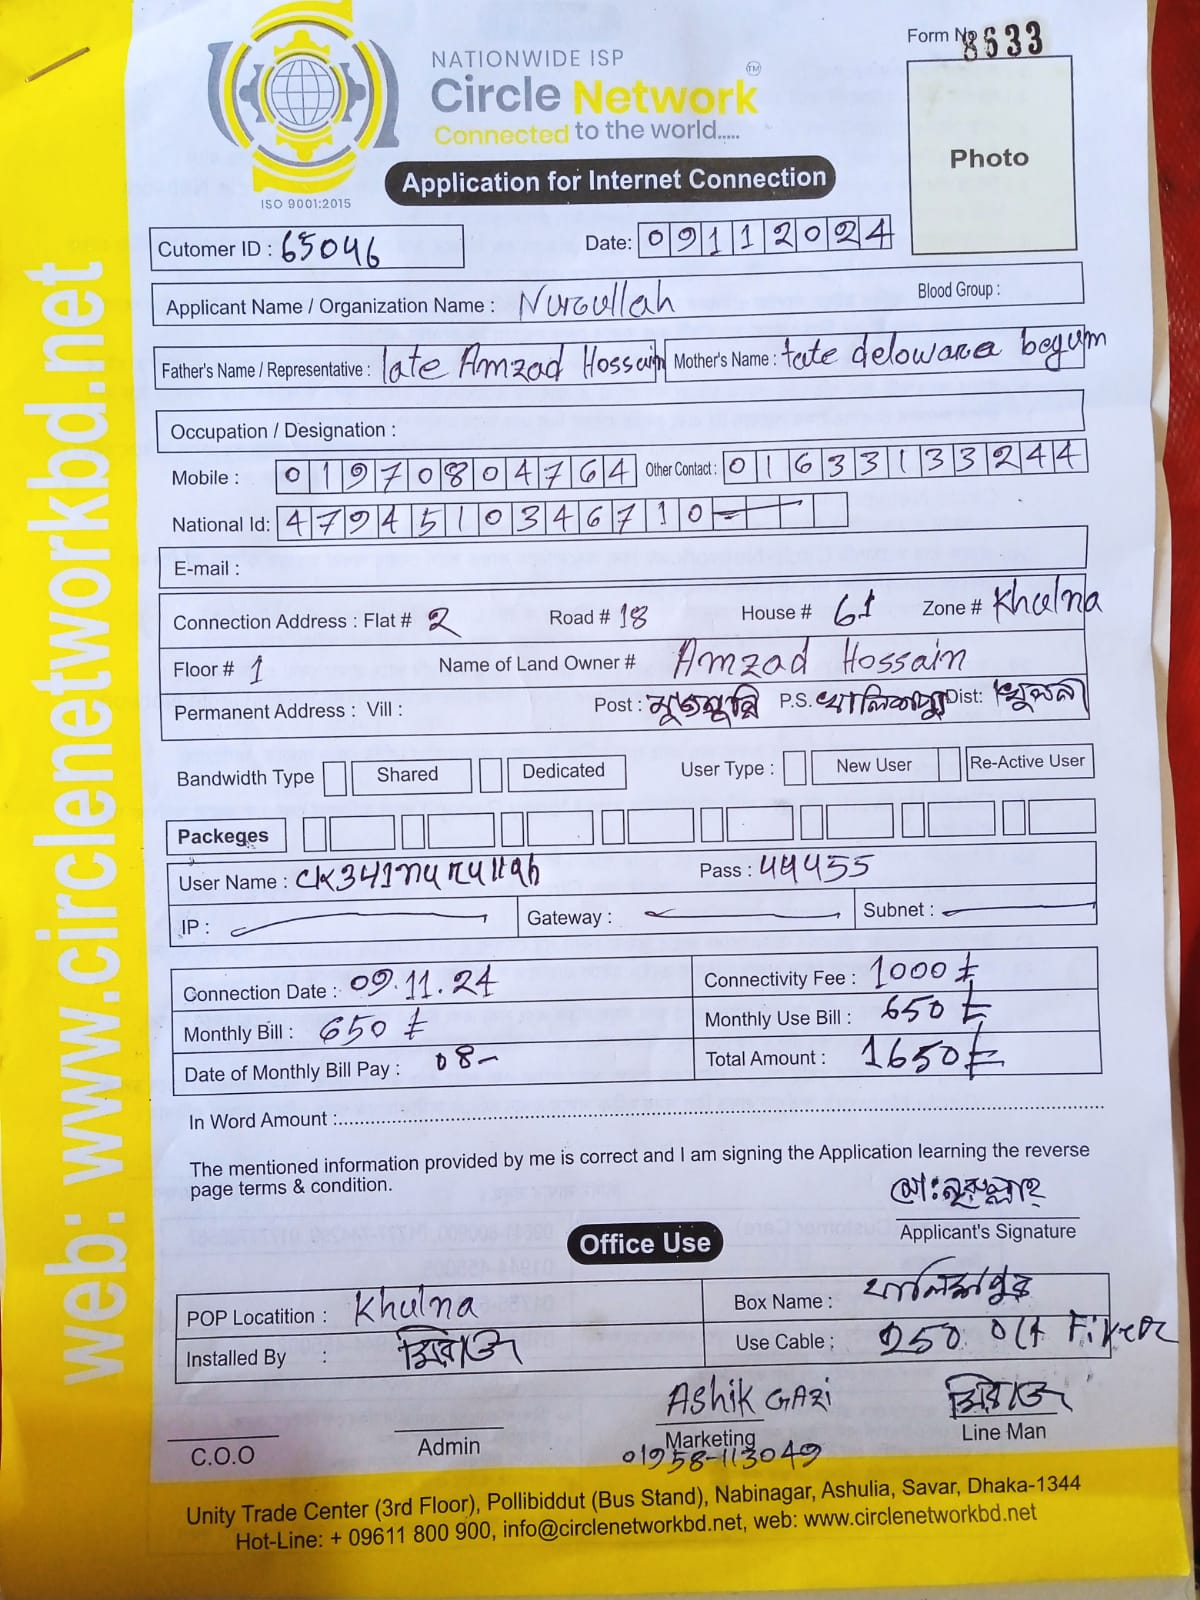 Form No 8633
NATIONWIDE ISP
Circle Network TM
Connected to the world.....
ISO 9001:2015
Application for Internet Connection
Photo
Cutomer ID : 65046
Date: 09112024
Applicant Name / Organization Name : Nurullah Blood Group :
Father's Name / Representative : late Amzad Hossain Mother's Name : late delowara begum
Occupation / Designation :
Mobile : 01970804764 Other Contact : 01633133244
National Id: 4794510346710
E-mail :
Connection Address : Flat # 2 Road # 18 House # 61 Zone # Khulna
Floor # 1 Name of Land Owner # Amzad Hossain
Permanent Address : Vill : Post : P.S. খালিশপুর Dist: খুলনা
Bandwidth Type Shared Dedicated User Type : New User Re-Active User
Packeges
User Name : CK341nurullah Pass : 44455
IP : Gateway : Subnet :
Connection Date : 09.11.24 Connectivity Fee : 1000 ৳
Monthly Bill : 650 ৳ Monthly Use Bill : 650 ৳
Date of Monthly Bill Pay : 08- Total Amount : 1650 ৳
In Word Amount :
The mentioned information provided by me is correct and I am signing the Application learning the reverse
page terms & condition.
মো: নুরুল্লাহ
Applicant's Signature
Office Use
POP Locatition : Khulna Box Name : খালিশপুর
Installed By : মিরাজ Use Cable ;
Ashik GAZi মিরাজ
C.O.O Admin Marketing Line Man
01958-113049
Unity Trade Center (3rd Floor), Pollibiddut (Bus Stand), Nabinagar, Ashulia, Savar, Dhaka-1344
Hot-Line: + 09611 800 900, info@circlenetworkbd.net, web: www.circlenetworkbd.net
web: www.circlenetworkbd.net